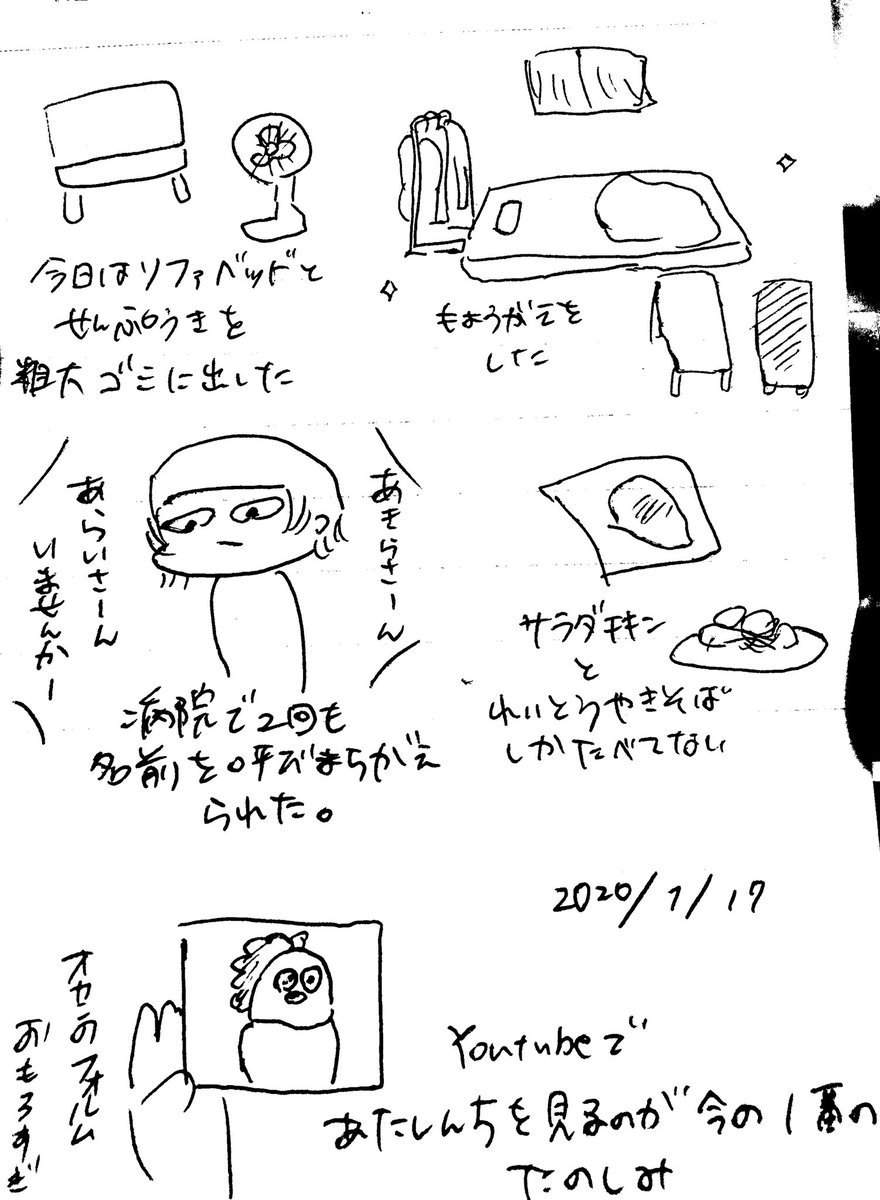 今日はソファベッドと
せんぷうきを
粗大ゴミに出した
もようがえを
した
あきらさーん
あらいさーん
いませんかー
病院で2回も
名前を呼びまちがえ
られた。
サラダチキン
と
れいとうやきそば
しかたべてない
2020/1/17
オカンのフォルム
おもろすぎ
Youtubeで
あたしんちを見るのが今の1番の
たのしみ